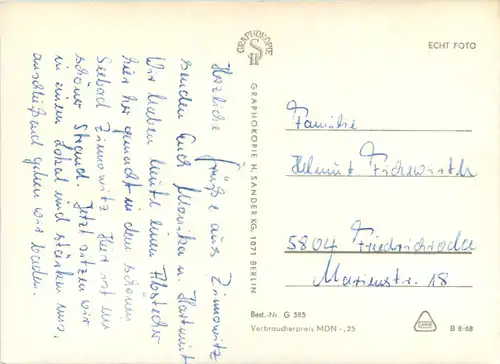 Herzliche Grüße aus Zinnowitz
senden Euch Monika u. Hartmut
Wir haben heute einen Abstecher
hier her gemacht in den schönen
Seebad Zinnowitz. Hier ist ein
schöner Strand. Jetzt sitzen wir
in einem Lokal und stärken uns.
anschließend gehen wir baden.
GRAPHOKOPIE
GRAPHOKOPIE H. SANDER KG, 1071 BERLIN
ECHT FOTO
Familie
Helmut
5804 Friedrichroda
Marienstr. 18
Best.-Nr. G 385
Verbraucherpreis MDN -,25
B 8/68